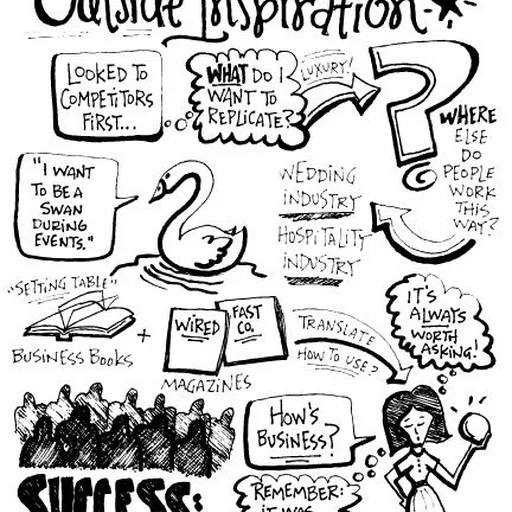 Outside Inspiration
LOOKED TO
COMPETITORS
FIRST...
WHAT DO I
WANT TO
REPLICATE?
LUXURY!
?
WHERE
ELSE
DO
PEOPLE
WORK
THIS
WAY?
"I WANT
TO BE A
SWAN
DURING
EVENTS."
WEDDING
INDUSTRY
HOSPITALITY
INDUSTRY
"SETTING TABLE"
BUSINESS BOOKS
+
WIRED
FAST
CO.
MAGAZINES
TRANSLATE
HOW TO USE?
IT'S
ALWAYS
WORTH
ASKING!
HOW'S
BUSINESS?
SUCCESS:
REMEMBER:
IT WAS